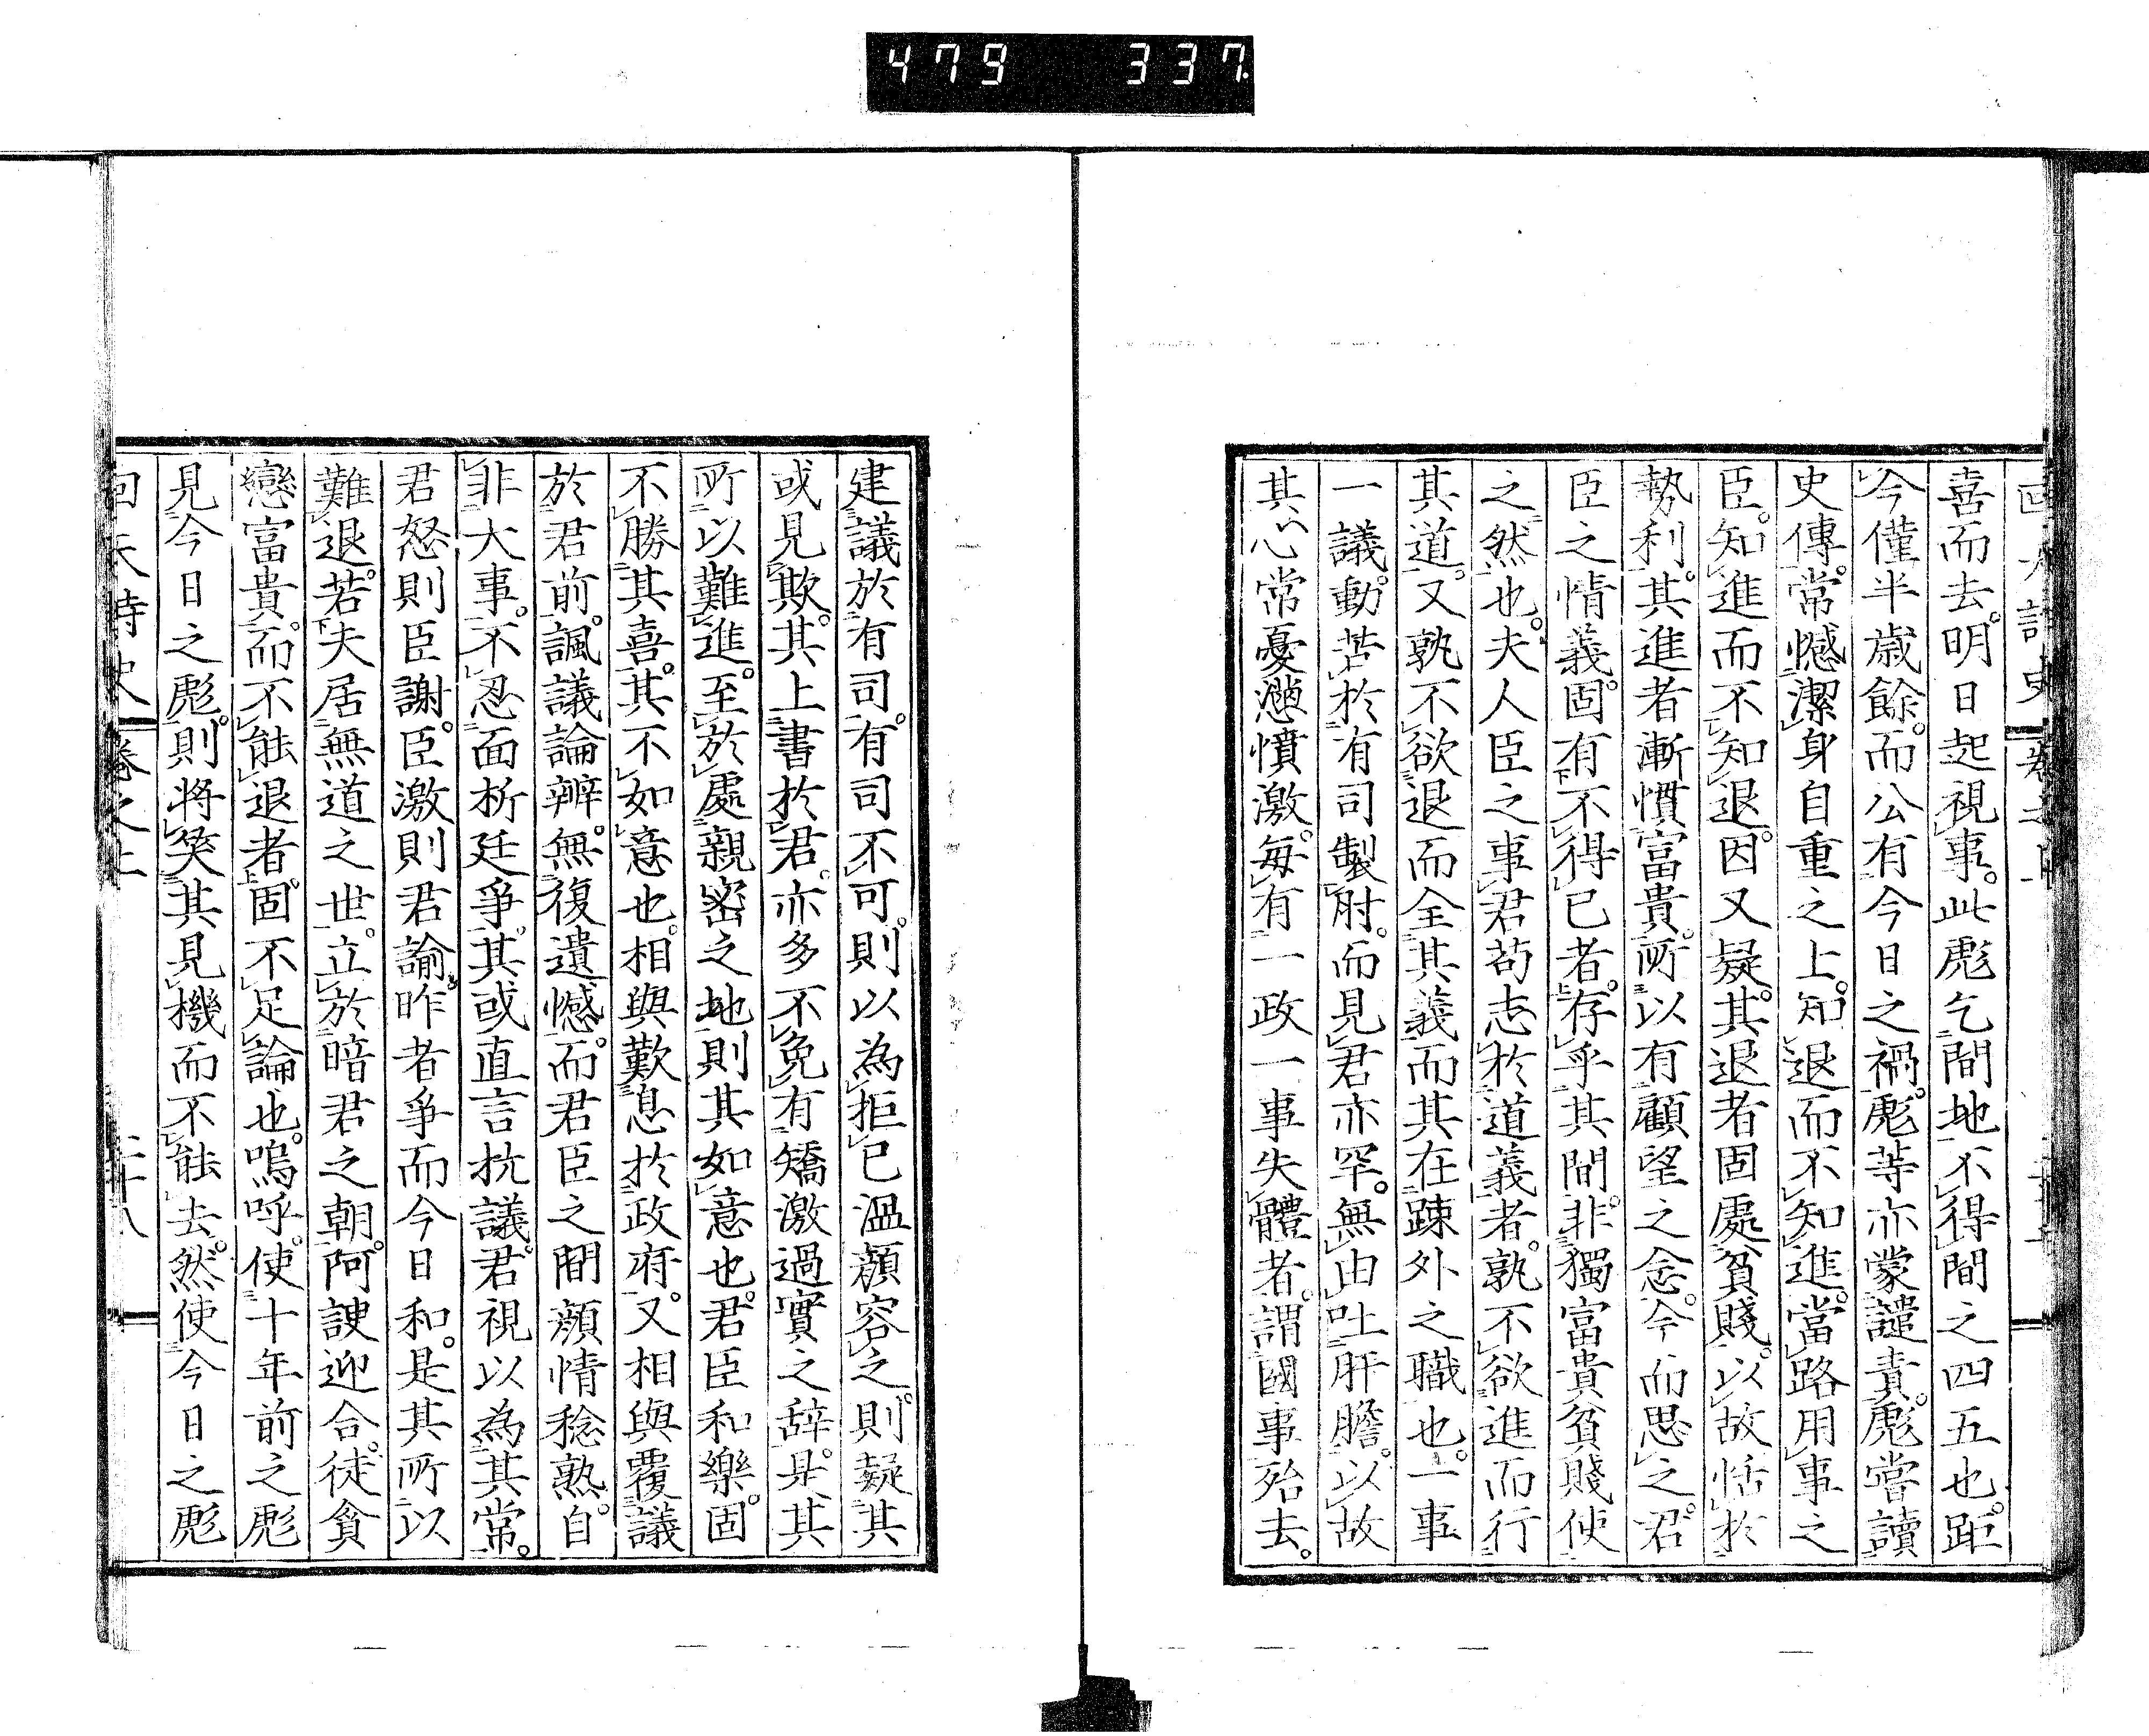 479 337
喜而去。明日起視事。此彪乞間地不得間之四五也。距
今僅半歳餘。而公有今日之禍。彪等亦蒙譴責。彪嘗讀
史傳。常憾潔身自重之上。知退而不知進。當路用事之
臣。知進而不知退。因又疑。其退者固處貧賤。以故恬於
勢利。其進者漸慣富貴。所以有顧望之念。今而思之。君
臣之情義。固有不得已者。存乎其間。非獨富貴貧賤使
之然也。夫人臣之事君苟志於道義者。孰不欲進而行
其道。又孰不欲退而全其義而其在疎外之職也。一事
一議。動苦於有司製肘。而見君亦罕。無由吐肝膽。以故
其心常憂懣憤激。毎有一政一事失體者。謂國事殆去。
建議於有司。有司不可。則以為拒已溫顏容之。則疑其
或見欺。其上書於君。亦多不免有矯激過實之辞。是其
所以難進。至於處親密之地則其如意也。君臣和樂。固
不勝其喜。其不如意也。相與歎息於政府。又相與覆議
於君前。諷議論辨。無復遺憾。而君臣之間顏情稔熟。自
非大事。不忍面折廷爭。其或直言抗議。君視以為其常。
君怒則臣謝。臣激則君諭。昨者爭而今日和。是其所以
難退。若夫居無道之世。立於暗君之朝。阿諛迎合。徒貪
戀富貴。而不能退者。固不足論也。嗚呼。使十年前之彪
見今日之彪。則将笑其見機而不能去。然使今日之彪
回天詩史 卷之上 二十八